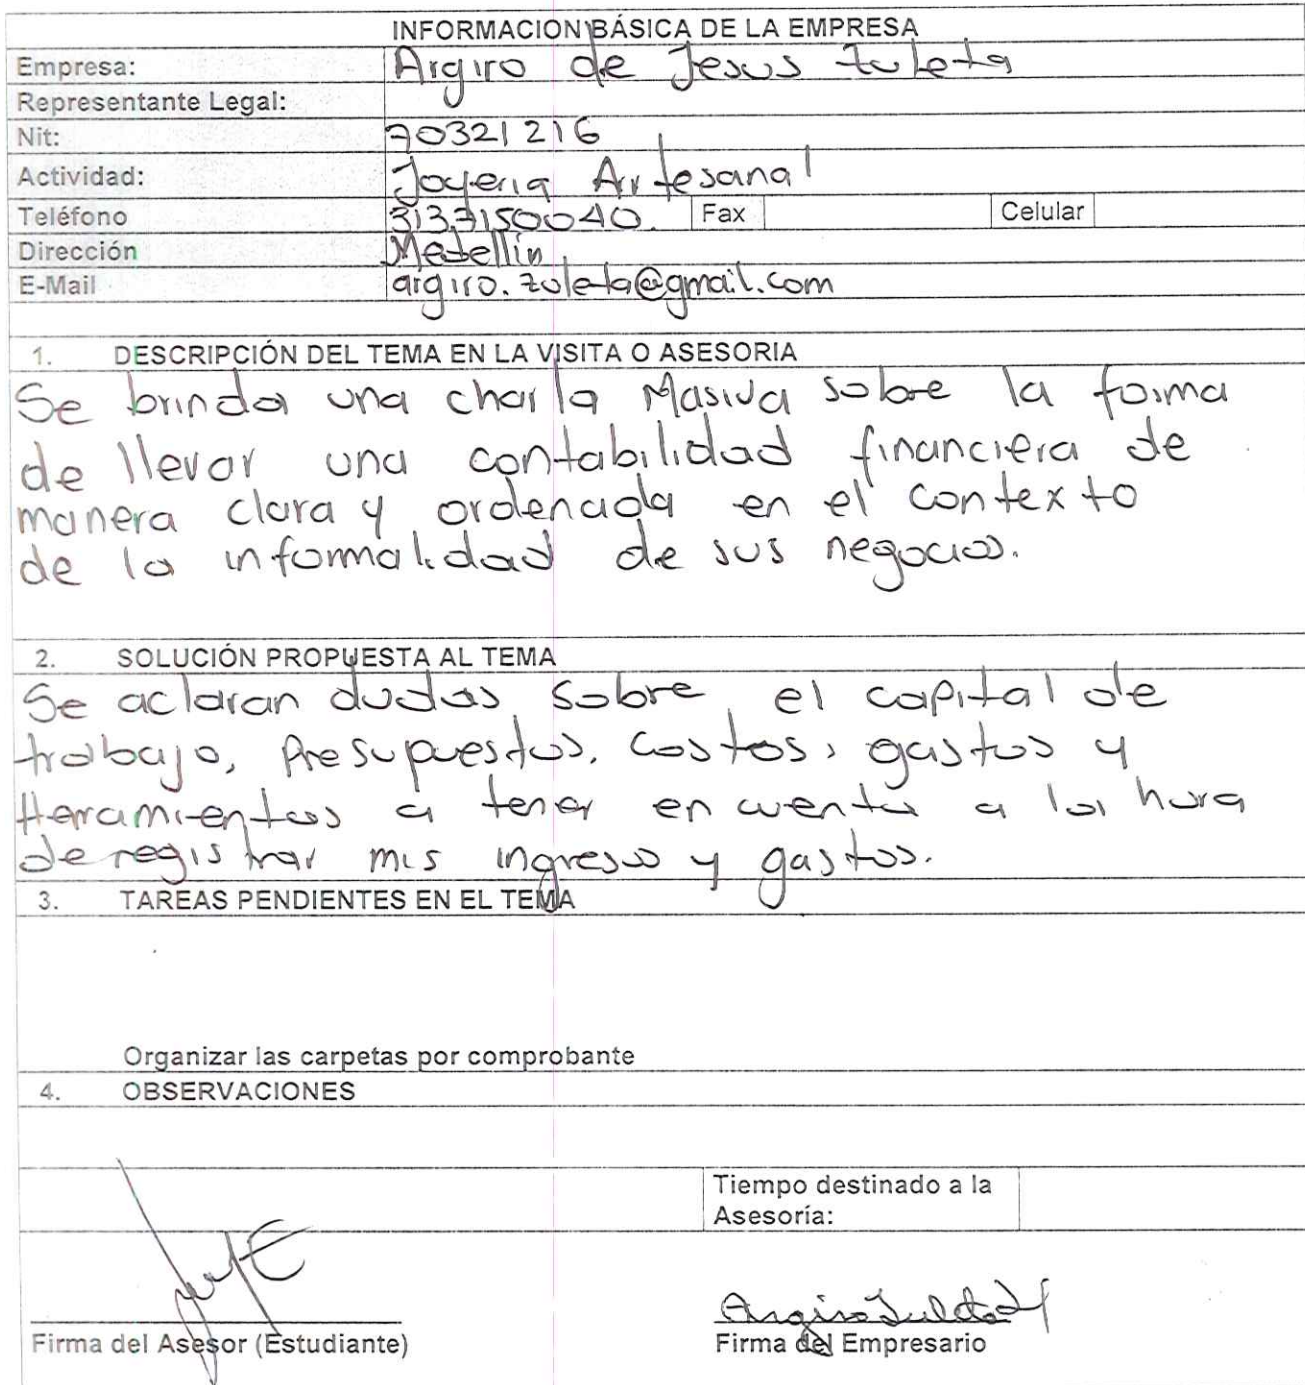 INFORMACION BÁSICA DE LA EMPRESA
Empresa: Argiro de Jesus Zuleta
Representante Legal:
Nit: 70321216
Actividad: Joyeria Artesanal
Teléfono 3137150040. Fax Celular
Dirección Medellín
E-Mail argiro.zuleta@gmail.com
1. DESCRIPCIÓN DEL TEMA EN LA VISITA O ASESORIA
Se brinda una charla Masiva sobre la forma
de llevar una contabilidad financiera de
manera clara y ordenada en el contexto
de la informalidad de sus negocios.
2. SOLUCIÓN PROPUESTA AL TEMA
Se aclaran dudas sobre el capital de
trabajo, Presupuestos, costos, gastos y
Herramientas a tener en cuenta a la hora
de registrar mis ingresos y gastos.
3. TAREAS PENDIENTES EN EL TEMA
Organizar las carpetas por comprobante
4. OBSERVACIONES
Tiempo destinado a la
Asesoría:
Argiro Zuleta
Firma del Asesor (Estudiante) Firma del Empresario